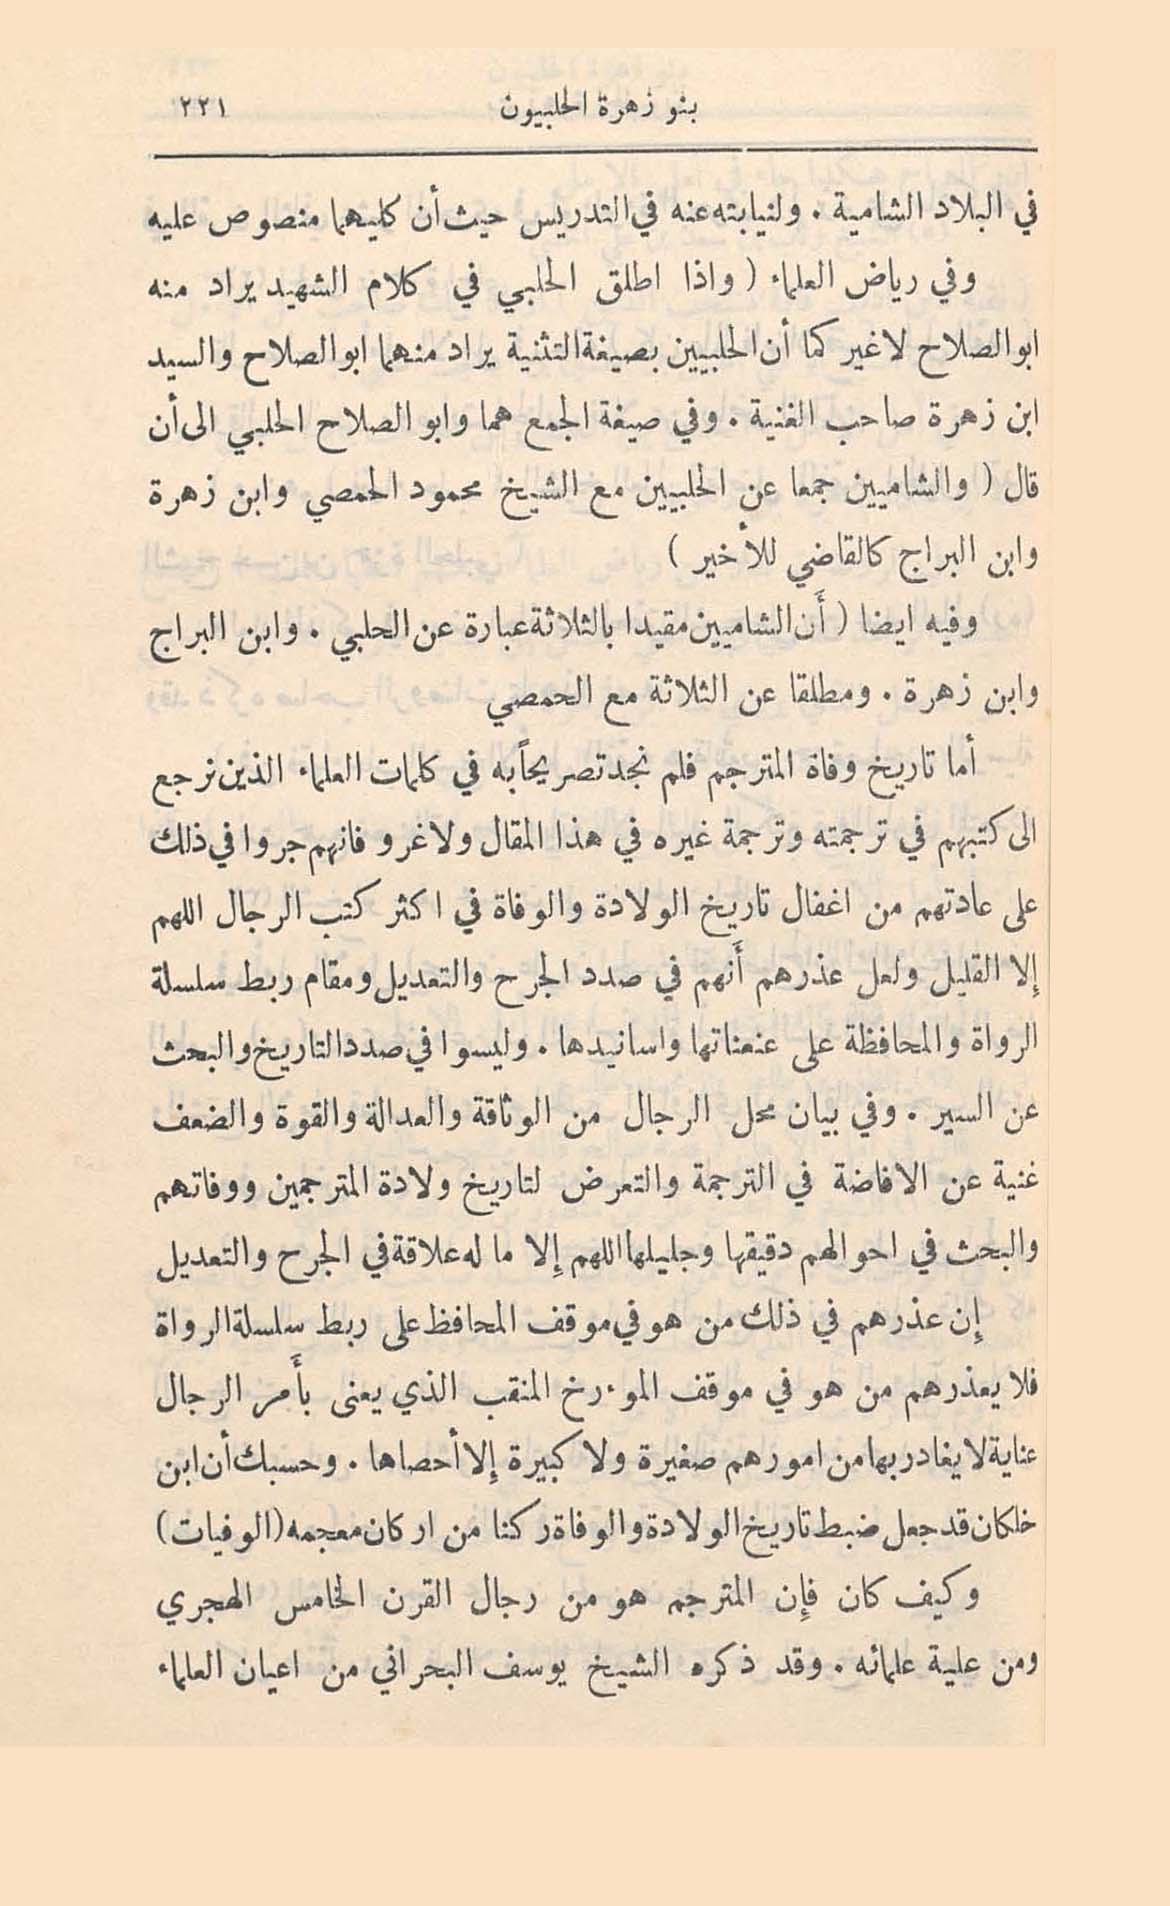 بنو زهرة الحلبيون ٢٢١
في البلاد الشامية . ولنيابته عنه في التدريس حيث أن كليهما منصوص عليه
وفي رياض العلماء ( واذا اطلق الحلبي في كلام الشهيد يراد منه
ابو الصلاح لا غير كما أن الحلبيين بصيغة التثنية يراد منهما ابو الصلاح والسيد
ابن زهرة صاحب الغنية . وفي صيغة الجمع هما وابو الصلاح الحلبي الى أن
قال ( والشاميين جمعا عن الحلبيين مع الشيخ محمود الحمصي وابن زهرة
وابن البراج كالقاضي للأخير )
وفيه ايضا ( أَن الشاميين مقيدا بالثلاثة عبارة عن الحلبي . وابن البراج
وابن زهرة . ومطلقا عن الثلاثة مع الحمصي
أما تاريخ وفاة المترجم فلم نجد تصريحاً به في كلمات العلماء الذين نرجع
الى كتبهم في ترجمته وترجمة غيره في هذا المقال ولا غرو فانهم جروا في ذلك
على عادتهم من اغفال تاريخ الولادة والوفاة في اكثر كتب الرجال اللهم
إلا القليل ولعل عذرهم أَنهم في صدد الجرح والتعديل ومقام ربط سلسلة
الرواة والمحافظة على عنعناتها واسانيدها . وليسوا في صدد التاريخ والبحث
عن السير . وفي بيان محل الرجال من الوثاقة والعدالة والقوة والضعف
غنية عن الافاضة في الترجمة والتعرض لتاريخ ولادة المترجمين ووفاتهم
والبحث في احوالهم دقيقها وجليلها اللهم إلا ما له علاقة في الجرح والتعديل
إن عذرهم في ذلك من هو في موقف المحافظ على ربط سلسلة الرواة
فلا يعذرهم من هو في موقف الموءرخ المنقب الذي يعنى بأَمر الرجال
عناية لا يغادر بها من امورهم صغيرة ولا كبيرة إلا أحصاها . وحسبك أن ابن
خلكان قد جعل ضبط تاريخ الولادة والوفاة ركنا من اركان معجمه (الوفيات)
وكيف كان فإن المترجم هو من رجال القرن الخامس الهجري
ومن علية علمائه . وقد ذكره الشيخ يوسف البحراني من اعيان العلماء